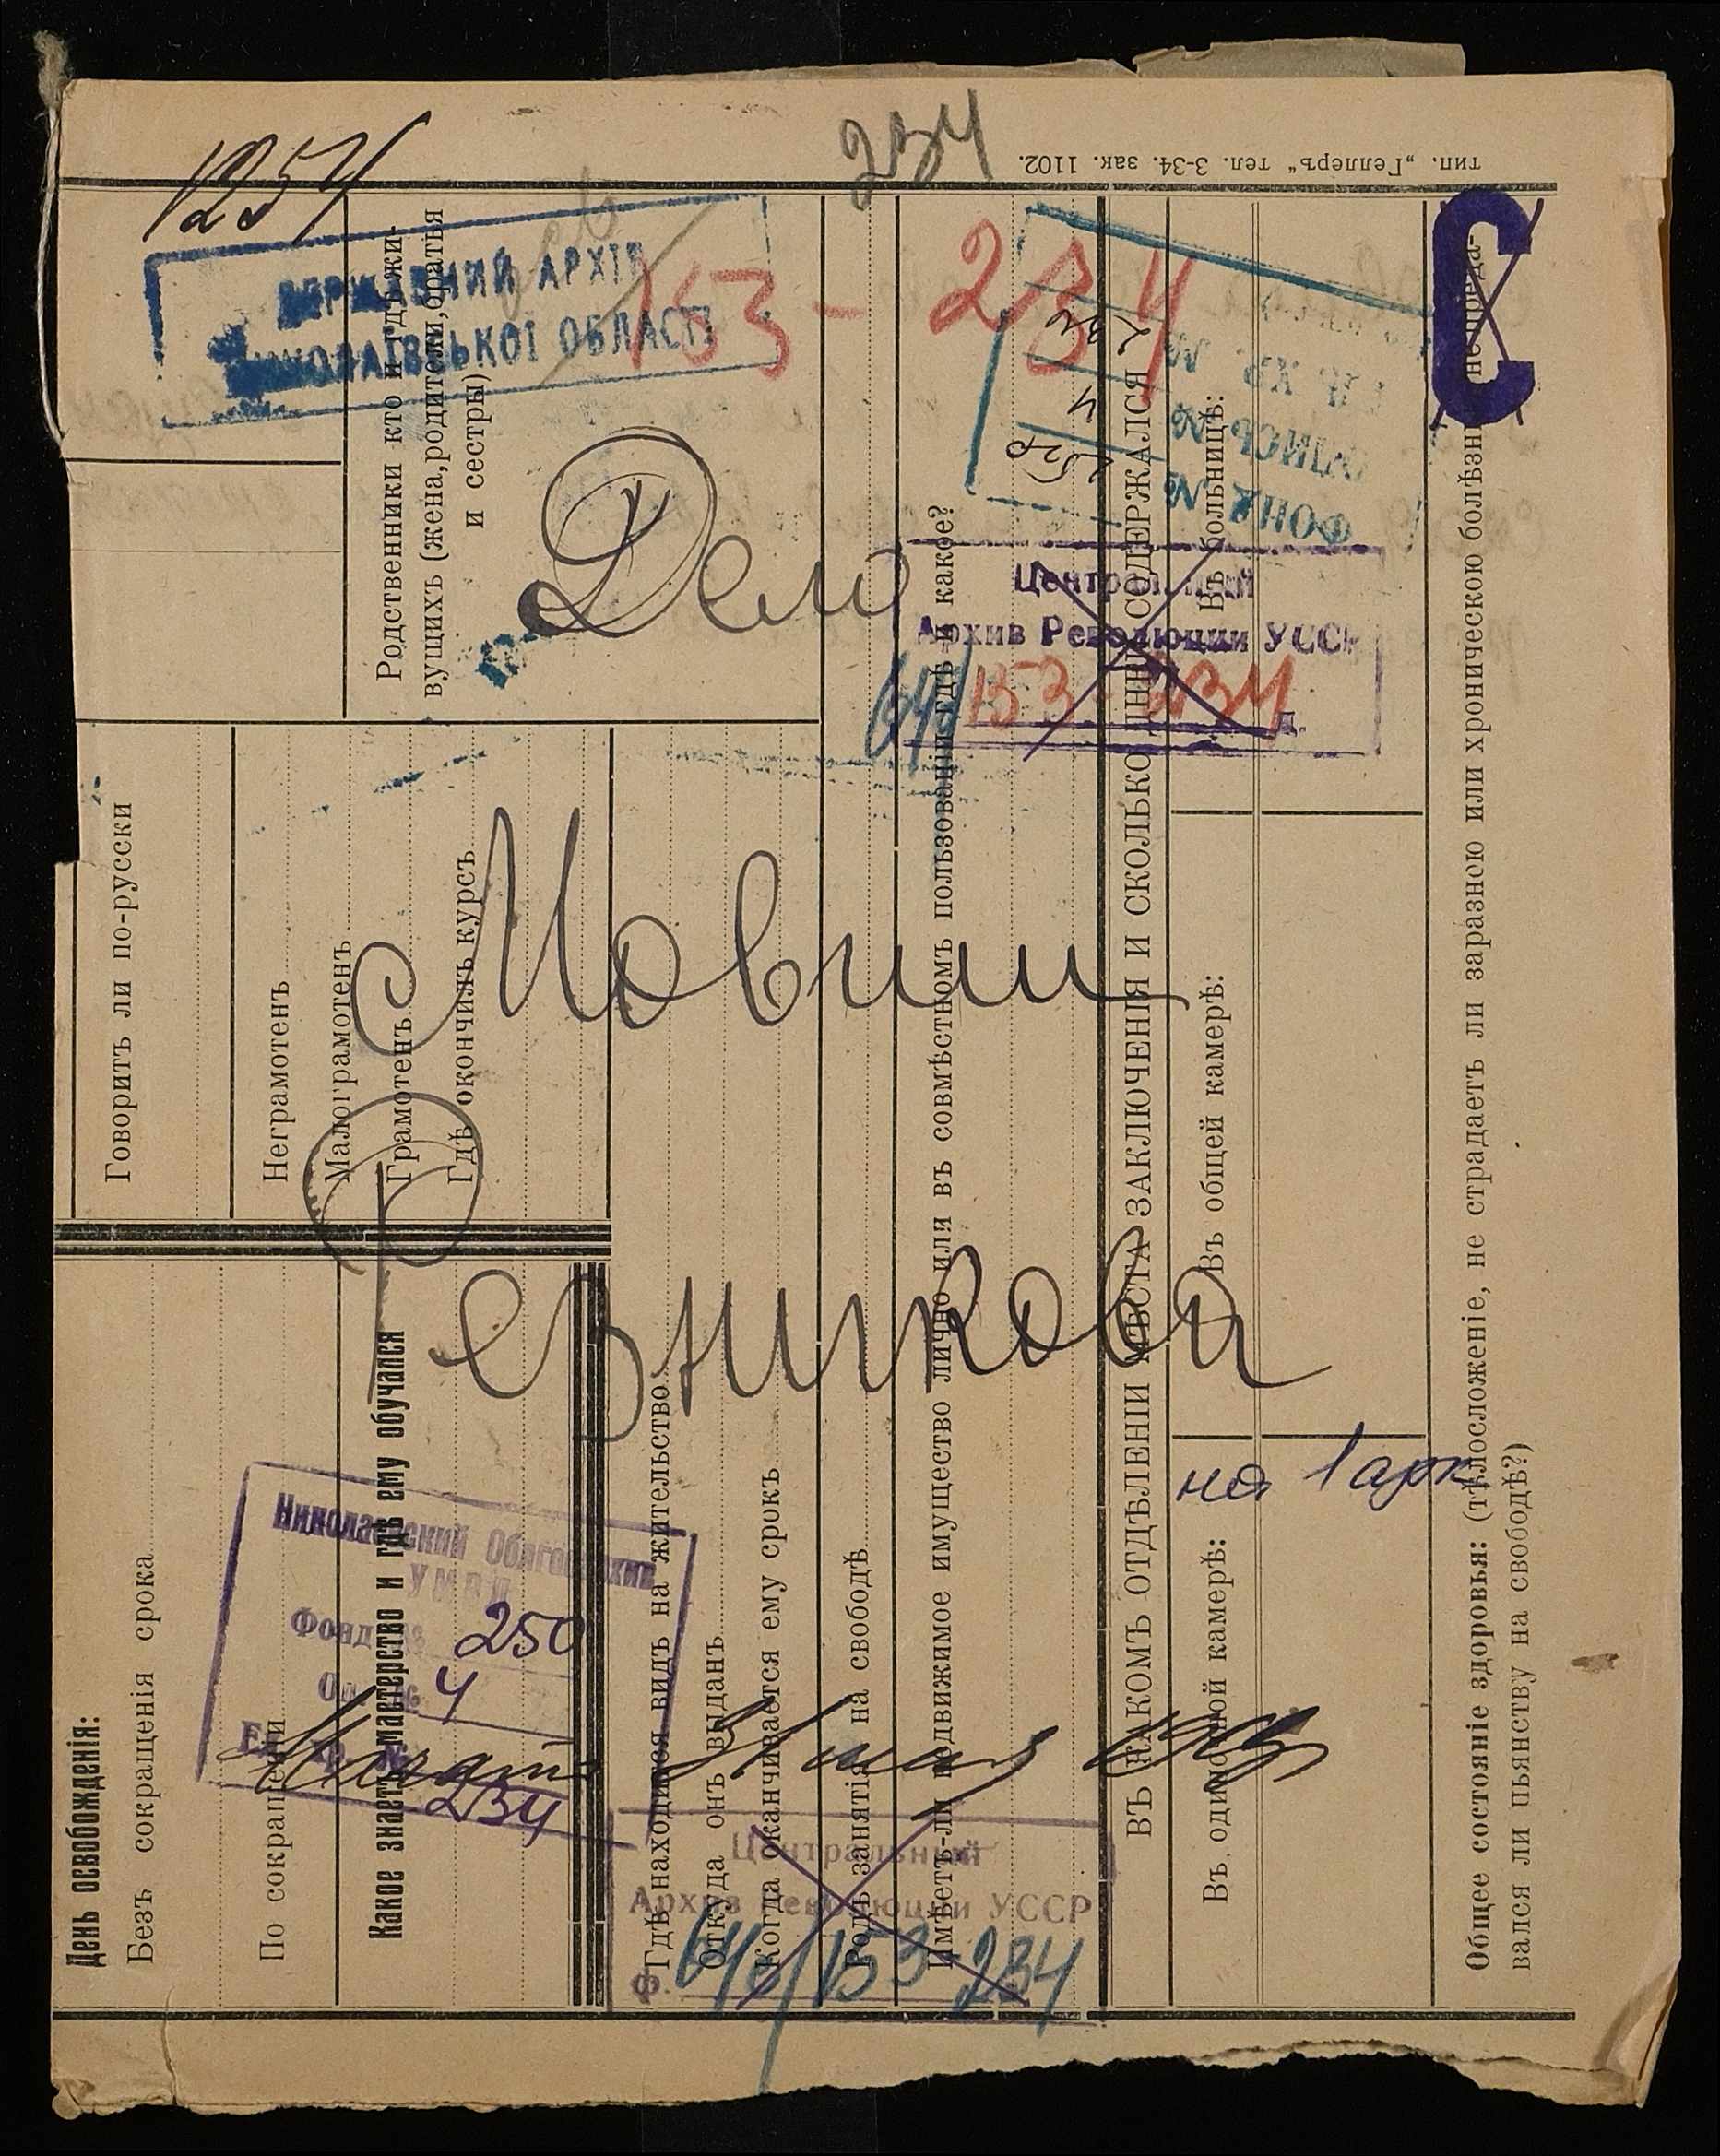 тип. „Геллеръ“ тел. 3-34. зак. 1102.
234
1254
ДЕРЖАВНИЙ АРХІВ
МИКОЛАЇВСЬКОЇ ОБЛАСТІ
153 - 234
С
ФОНД №
ОПИСЬ №
ЕД. ХР. №
4
Дело
Центральный
Архив Революции УССР
153-234
Николаевский Облгосархив
УМВД
Фонд № 250
4
234
Начато
на 1 арк
Центральный
Архив Революции УССР
ф. 153-234
День освобожденія:
Безъ сокращенія срока
По сокращеніи
Какое знаетъ мастерство и гдѣ ему обучался
Говоритъ ли по-русски
Неграмотенъ
Малограмотенъ
Грамотенъ
Гдѣ окончилъ курсъ
Родственники кто и гдѣ жи-
вущихъ (жена, родители, братья
и сестры)
Гдѣ находился видъ на жительство
Откуда онъ выданъ
Когда оканчивается ему срокъ
Родъ занятія на свободѣ
Имѣетъ-ли недвижимое имущество лично или въ совмѣстномъ пользованіи, гдѣ и какое?
ВЪ КАКОМЪ ОТДѢЛЕНІИ МѢСТА ЗАКЛЮЧЕНІЯ И СКОЛЬКО ДНЕЙ СОДЕРЖАЛСЯ
Въ одиночной камерѣ:
Въ общей камерѣ:
Въ больницѣ:
Общее состояніе здоровья: (тѣлосложеніе, не страдаетъ ли заразною или хроническою болѣзнью, не преда-
вался ли пьянству на свободѣ?)